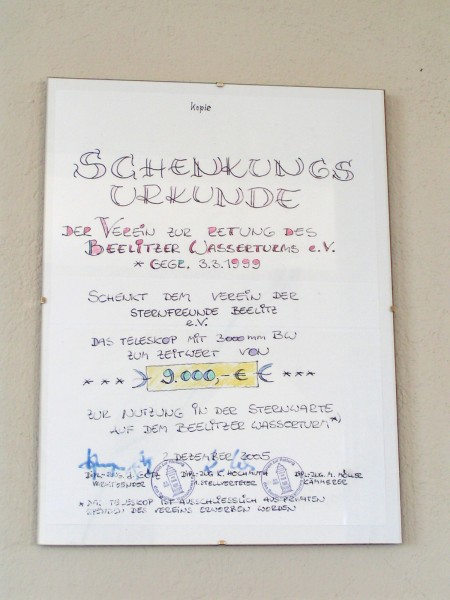 Kopie
SCHENKUNGS
URKUNDE
DER VEREIN ZUR RETUNG DES
BEELITZER WASSERTURMS e.V.
* GEGR. 3.3.1999
SCHENKT DEM VEREIN DER
STERNFREUNDE BEELITZ
e.V.
DAS TELESKOP MIT 3000mm BW
ZUM ZEITWERT VON
* * * 9.000,-€ * * *
ZUR NUTZUNG IN DER STERNWARTE
AUF DEM BEELITZER WASSERTURM *)
2. DEZEMBER 2005
GÖTZ DIPL.-ING. K. HOCHMUTH DIPL.-ING. M. MÖLLER
1. STELLVERTETER KÄMMERER
* TELESKOP IST AUSSCHLIESSLICH AUS PRIVATEN
SPENDEN DES VEREINS ERWORBEN WORDEN